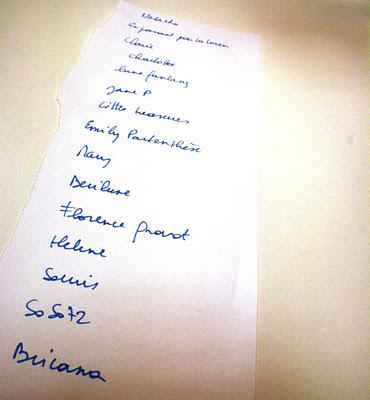 Natacha
En passant par la Loren
Claire
Charlotte
lune fantasy
Jane P
Little treasures
Emily Partenthèse
Many
Denilune
Florence Provot
Helene
Souris
SoSo72
Biricana